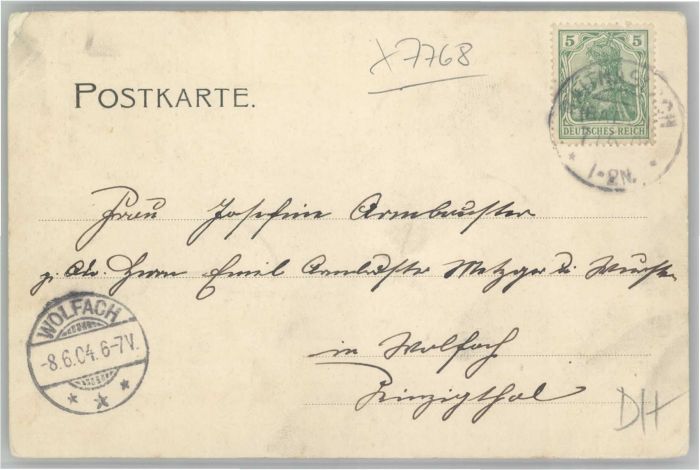 X7768
5 5
POSTKARTE.
DEUTSCHES REICH
1-2N.
Frau Josefine Armbruster
p. Adr. Herrn Emil Armbrster Metzger u. Wurstl
WOLFACH
-8.6.04. 6-7V.
in Wolfach
Kinzigthal
DH